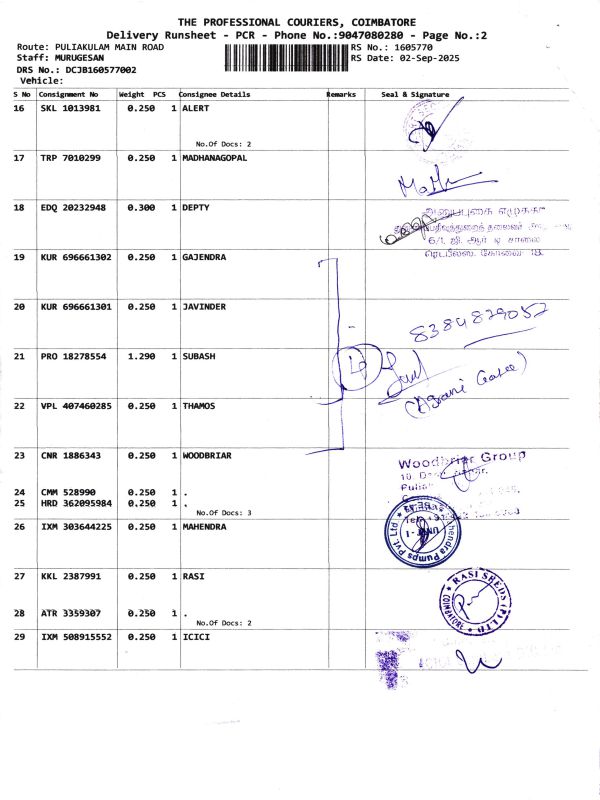 THE PROFESSIONAL COURIERS, COIMBATORE
Delivery Runsheet - PCR - Phone No.:9047080280 - Page No.:2
Route: PULIAKULAM MAIN ROAD RS No.: 1605770
Staff: MURUGESAN RS Date: 02-Sep-2025
DRS No.: DCJB160577002
Vehicle:
S No Consignment No Weight PCS Consignee Details Remarks Seal & Signature
16 SKL 1013981 0.250 1 ALERT
No.Of Docs: 2
17 TRP 7010299 0.250 1 MADHANAGOPAL
18 EDQ 20232948 0.300 1 DEPTY
6/1, ஜி. ஆர் டி சாலை
19 KUR 696661302 0.250 1 GAJENDRA
20 KUR 696661301 0.250 1 JAVINDER
8384829052
21 PRO 18278554 1.290 1 SUBASH
22 VPL 407460285 0.250 1 THAMOS
23 CNR 1886343 0.250 1 WOODBRIAR
Woodbriar Group
24 CMM 528990 0.250 1 .
25 HRD 362095984 0.250 1 .
No.Of Docs: 3
26 IXM 303644225 0.250 1 MAHENDRA
Pumps Pvt. Ltd
27 KKL 2387991 0.250 1 RASI
RASI SHEDS (P) LTD
COIMBATORE
28 ATR 3359307 0.250 1 .
No.Of Docs: 2
29 IXM 508915552 0.250 1 ICICI